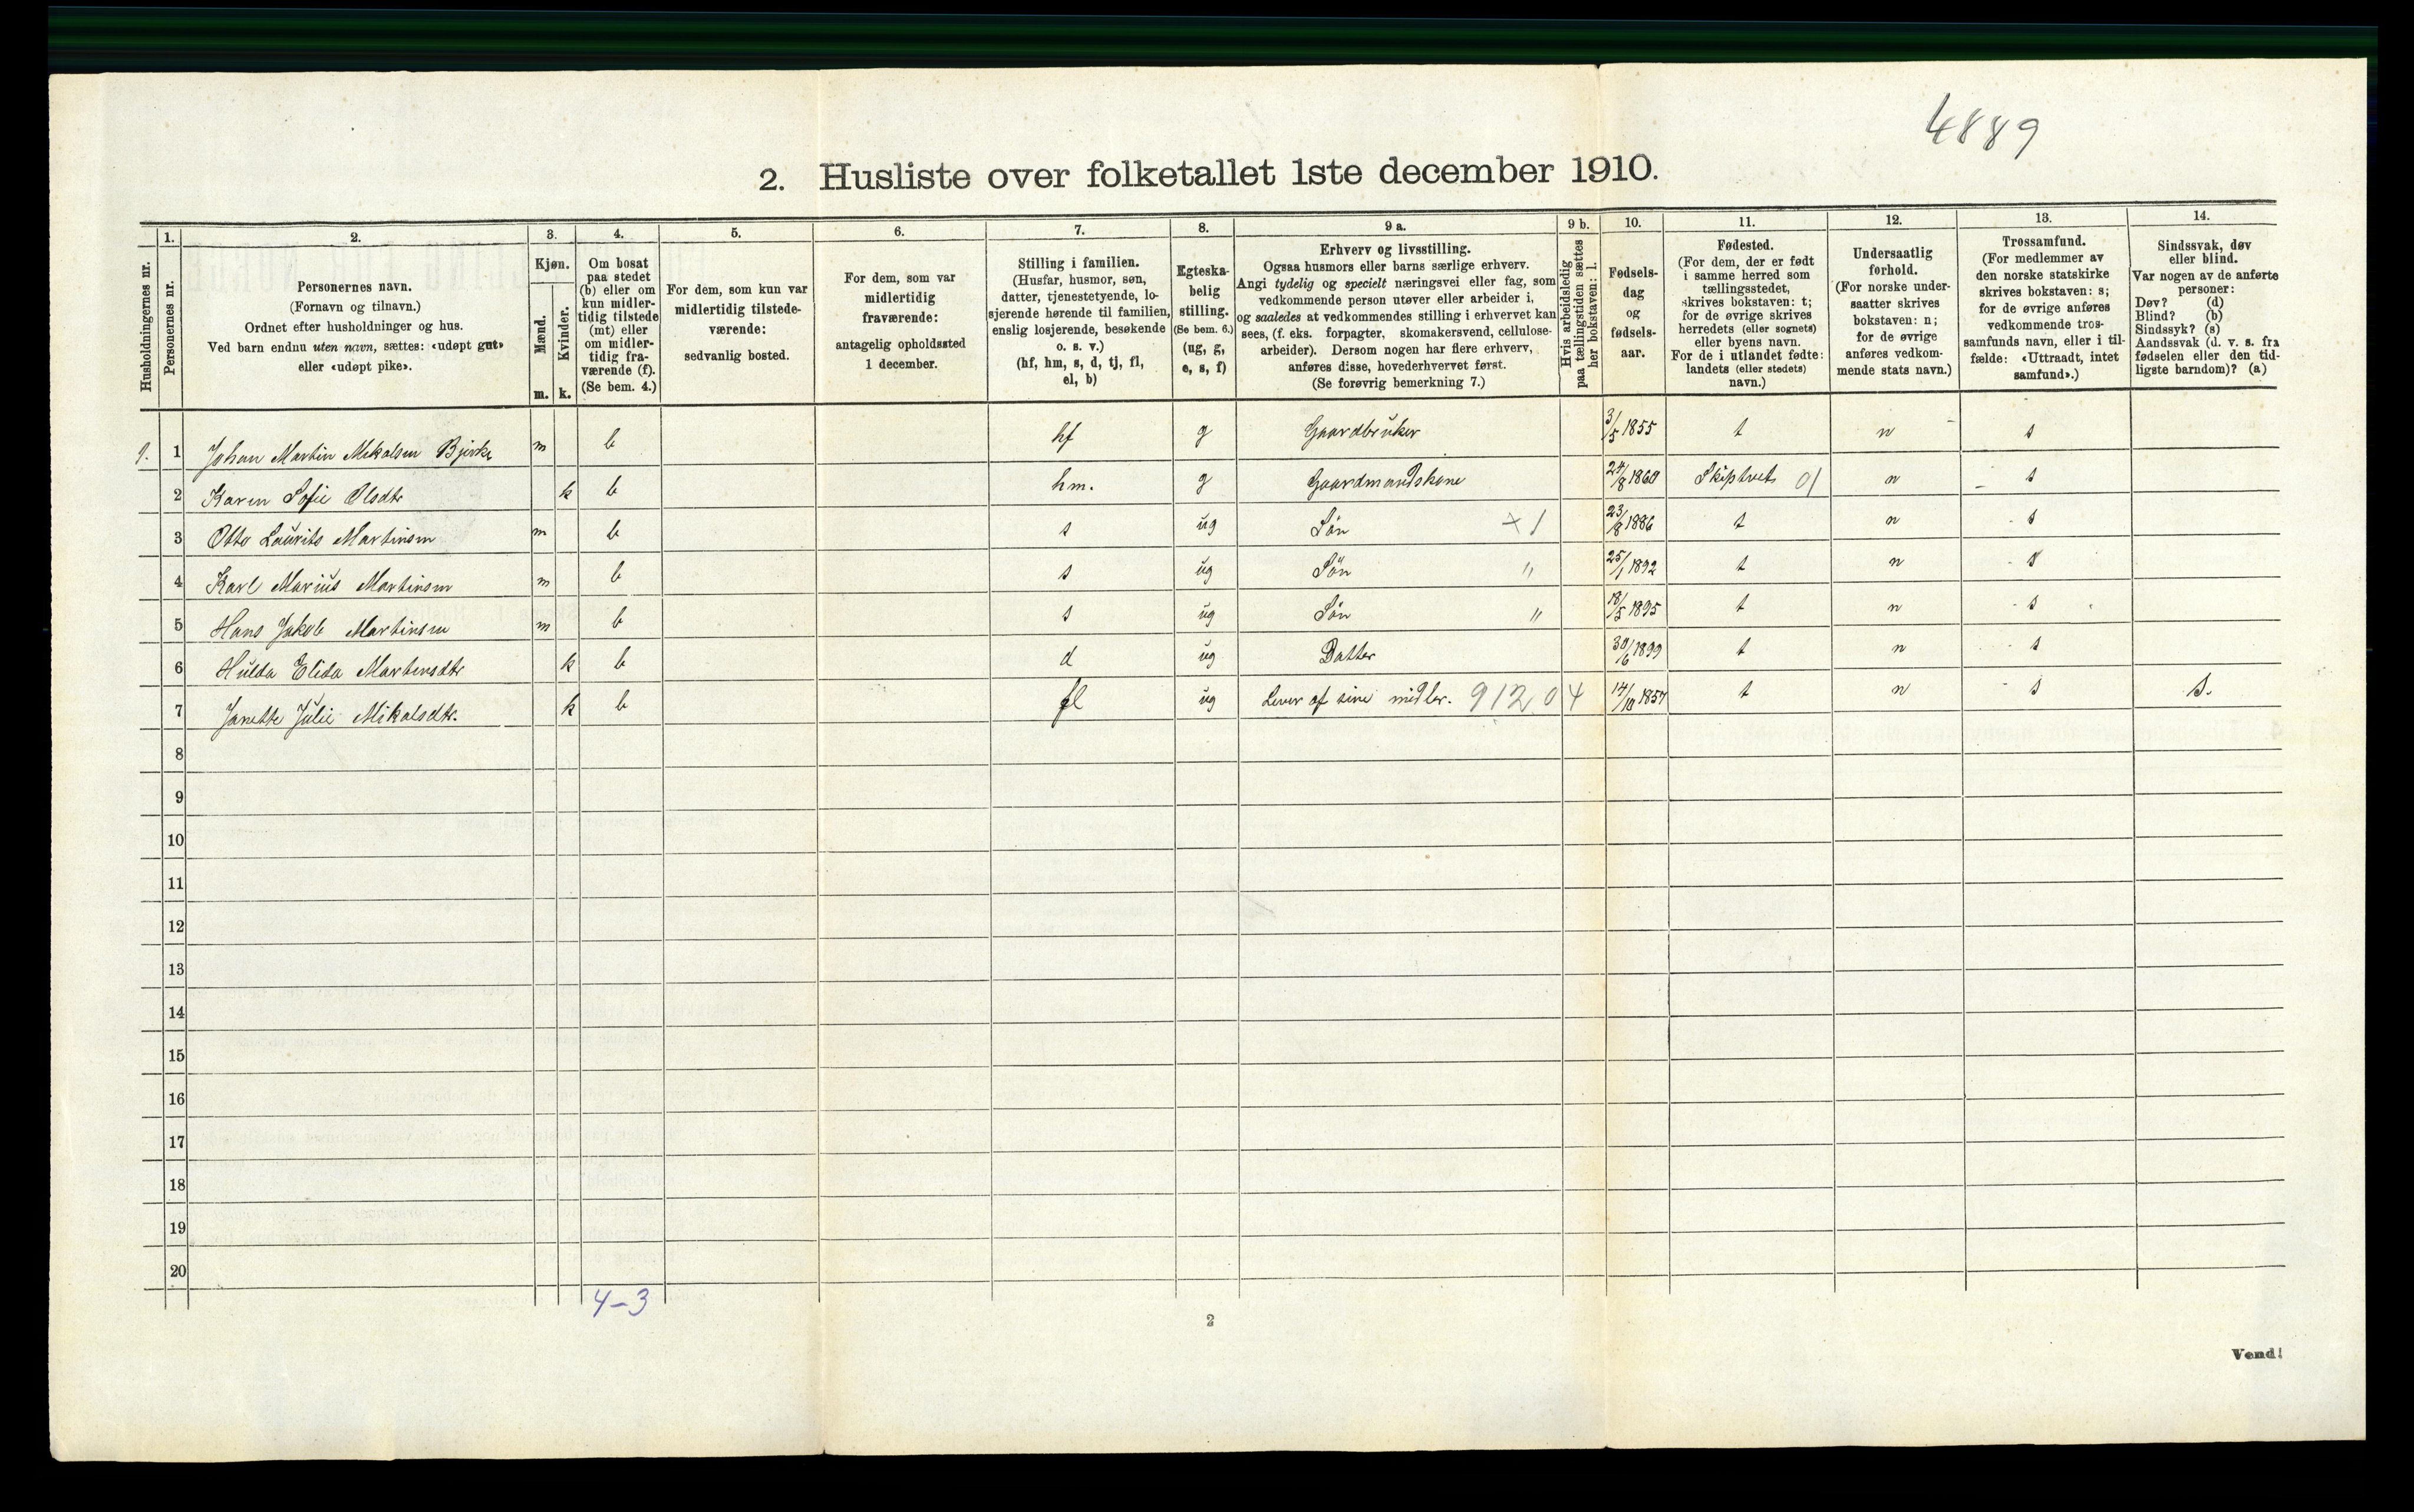 4889
2. Husliste over folketallet 1ste december 1910.
Husholdningernes nr.
1.
Personernes nr.
2.
Personernes navn.
(Fornavn og tilnavn.)
Ordnet efter husholdninger og hus.
Ved barn endnu uten navn, sættes: «udøpt gut»
eller «udøpt pike».
3.
Kjøn.
Mænd.
m.
Kvinder.
k.
4.
Om bosat
paa stedet
(b) eller om
kun midler-
tidig tilstede
(mt) eller
om midler-
tidig fra-
værende (f).
(Se bem. 4.)
5.
For dem, som kun var
midlertidig tilstede-
værende:
sedvanlig bosted.
6.
For dem, som var
midlertidig
fraværende:
antagelig opholdssted
1 december.
7.
Stilling i familien.
(Husfar, husmor, søn,
datter, tjenestetyende, lo-
sjerende hørende til familien,
enslig losjerende, besøkende
o. s. v.)
(hf, hm, s, d, tj, fl,
el, b)
8.
Egteska-
belig
stilling.
(Se bem. 6.)
(ug, g,
e, s, f)
9 a.
Erhverv og livsstilling.
Ogsaa husmors eller barns særlige erhverv.
Angi tydelig og specielt næringsvei eller fag, som
vedkommende person utøver eller arbeider i,
og saaledes at vedkommendes stilling i erhvervet kan
sees, (f. eks. forpagter, skomakersvend, cellulose-
arbeider). Dersom nogen har flere erhverv,
anføres disse, hovederhvervet først.
(Se forøvrig bemerkning 7.)
9 b.
Hvis arbeidsledig
paa tællingstiden sættes
her bokstaven: l.
10.
Fødsels-
dag
og
fødsels-
aar.
11.
Fødested.
(For dem, der er født
i samme herred som
tællingsstedet,
skrives bokstaven: t;
for de øvrige skrives
herredets (eller sognets)
eller byens navn.
For de i utlandet fødte:
landets (eller stedets)
navn.)
12.
Undersaatlig
forhold.
(For norske under-
saatter skrives
bokstaven: n;
for de øvrige
anføres vedkom-
mende stats navn.)
13.
Trossamfund.
(For medlemmer av
den norske statskirke
skrives bokstaven: s;
for de øvrige anføres
vedkommende tros-
samfunds navn, eller i til-
fælde: «Uttraadt, intet
samfund».)
14.
Sindssvak, døv
eller blind.
Var nogen av de anførte
personer:
Døv? (d)
Blind? (b)
Sindssyk? (s)
Aandssvak (d. v. s. fra
fødselen eller den tid-
ligste barndom)? (a)
1. 1 Johan Martin Mikalsen Bjerke m b hf g Gaardbruker 3/5 1855 t n s
2 Karen Sofie Olsdtr k b hm. g Gaardmandskone 24/8 1860 Skiptvet 01 n s
3 Otto Laurits Martinsen m b s ug Søn +1 23/8 1886 t n s
4 Karl Marius Martinsen m b s ug Søn " 25/1 1892 t n s
5 Hans Jakob Martinsen m b s ug Søn " 18/5 1895 t n s
6 Hulda Elida Martinsdtr k b d ug Datter 30/6 1899 t n s
7 Janette Julie Mikalsdtr. k b fl ug Lever af sine midler. 912 04 14/10 1857 t n s s.
8
9
10
11
12
13
14
15
16
17
18
19
20
4-3
2
Vend!